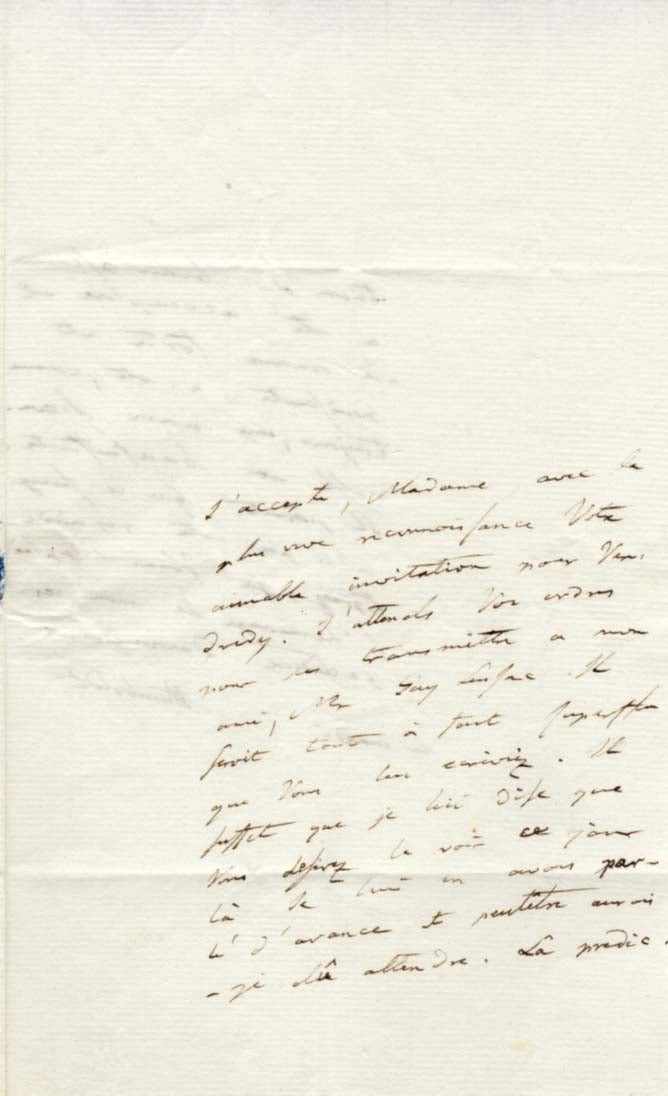 J'accepte, Madame avec la
plus vive reconnoissance Votre
aimable invitation pour Ven-
dredy. J'attends Vos ordres
pour les transmettre a mon
ami, Mr Gay Lussac. Il
seroit tout à fait superflu
que Vous lui ecriviez. Il
suffit que je lui dise que
Vous desirez le voir ce jour
là Je lui en avois par-
lé d'avance et peutêtre aurois
-je dû attendre. La predic-